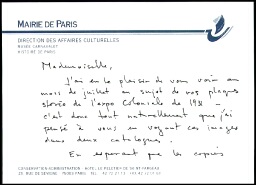 MAIRIE DE PARIS
DIRECTION DES AFFAIRES CULTURELLES
MUSEE CARNAVALET
HISTOIRE DE PARIS
Mademoiselle,
J'ai eu le plaisir de vous voir au
mois de juillet au sujet de vos plaques
stéréo de l'expo Coloniale de 1931 -
c'est donc tout naturellement que j'ai
pensé à vous en voyant ces images
dans deux catalogues.
En espérant que les copies
CONSERVATION-ADMINISTRATION HOTEL LE PELETIER DE SAINT-FARGEAU
29, RUE DE SEVIGNE 75003 PARIS